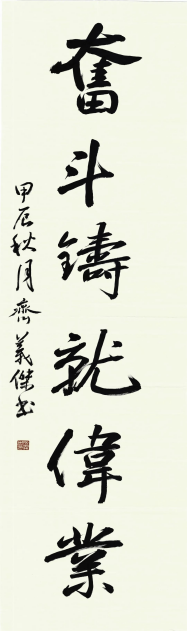 奮斗鑄就偉業
甲辰秋月齊義傑书